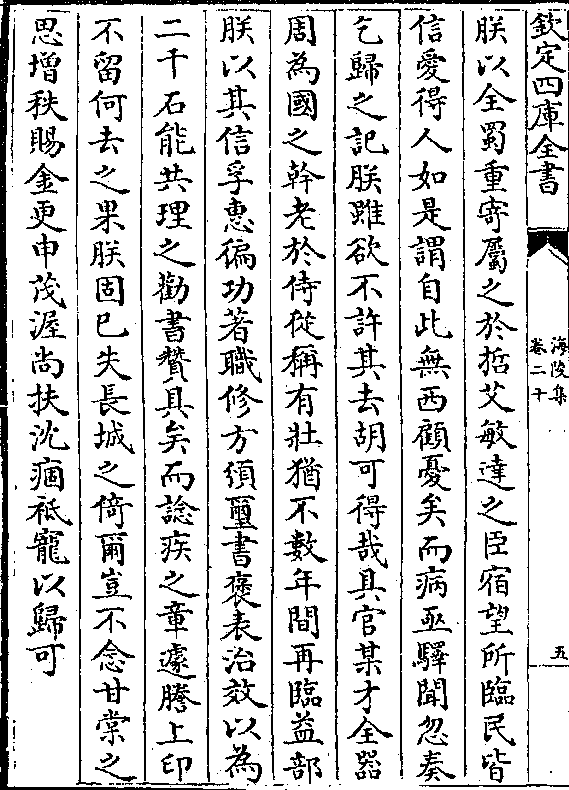 欽定四庫全書
海陵集
卷二十
五
朕以全蜀重寄屬之於哲艾敏達之臣宿望所臨民皆
信愛得人如是謂自此無西顧憂矣而病亟驛聞忽奏
乞歸之記朕雖欲不許其去胡可得哉具官某才全器
周為國之幹老於侍從稱有壯猶不數年間再臨益部
朕以其信孚惠徧功著職修方頒璽書褒表治效以為
二千石能共理之勸書贊具矣而諗疾之章遽騰上印
不留何去之果朕固已失長城之倚爾豈不念甘棠之
思增秩賜金更申茂渥尚扶沈痼祗寵以歸可